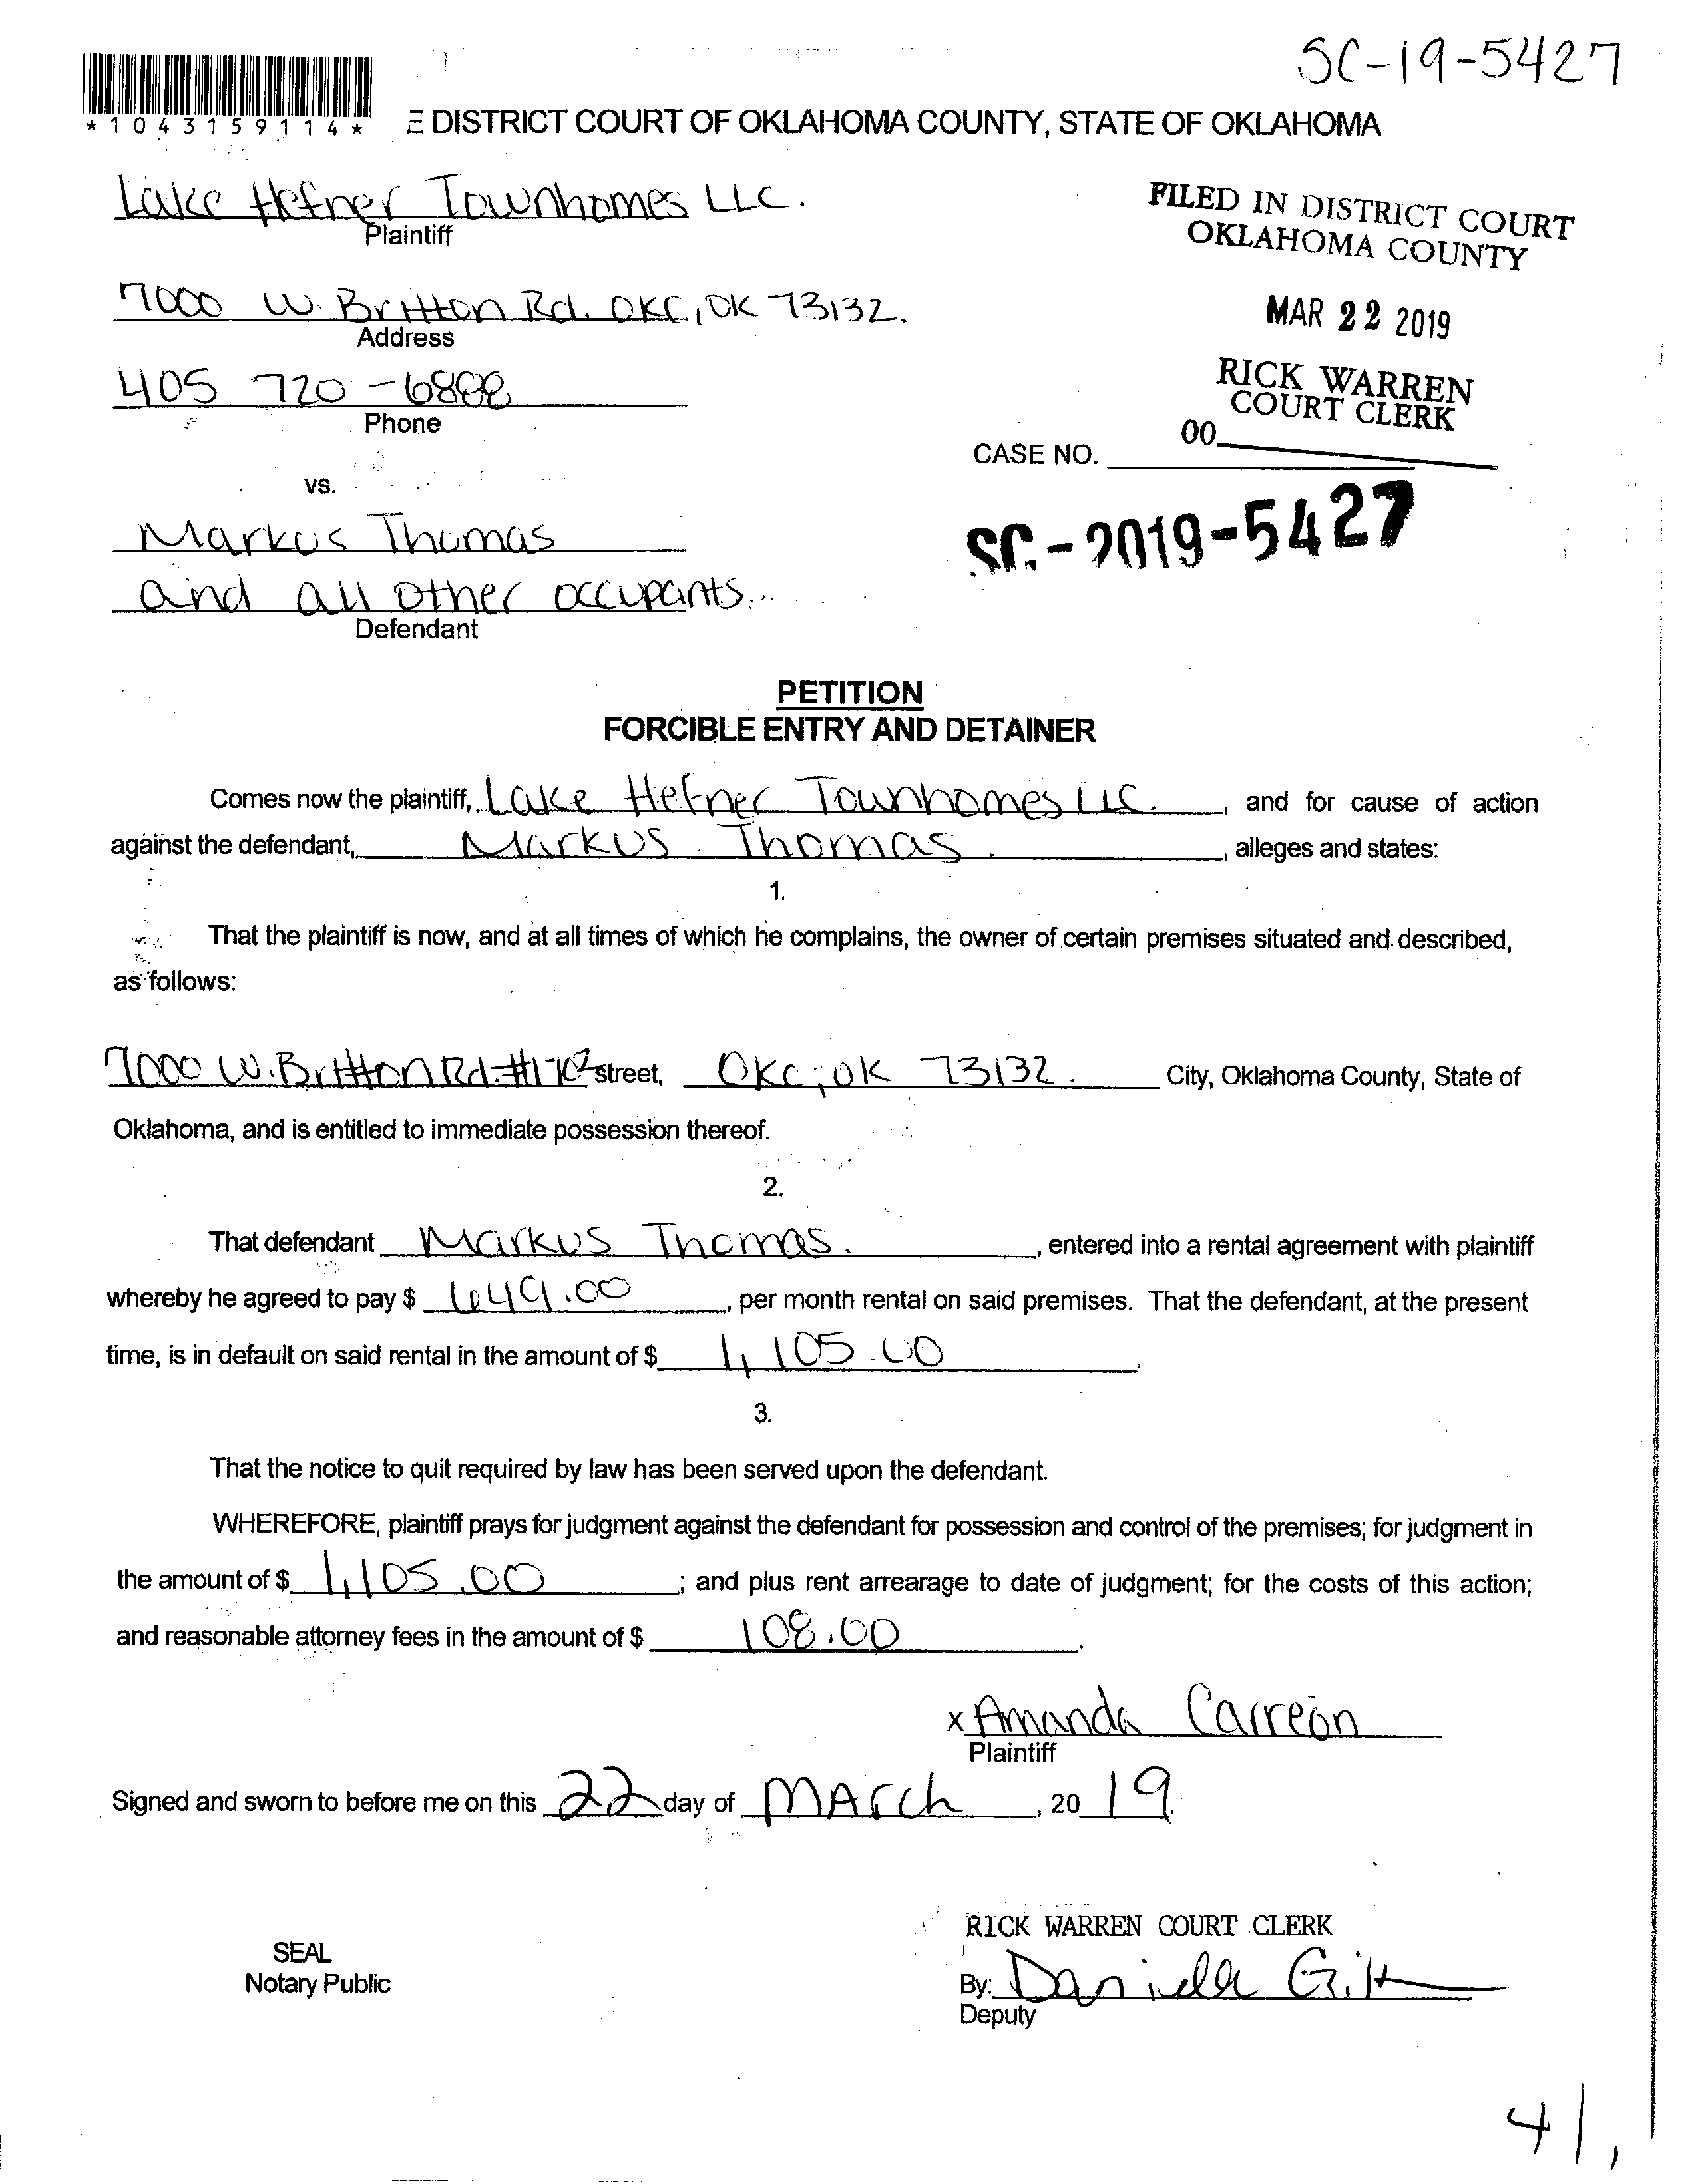 SC-19-5427
*1043159114*
E DISTRICT COURT OF OKLAHOMA COUNTY, STATE OF OKLAHOMA
Lake Hefner Townhomes LLC.
Plaintiff
FILED IN DISTRICT COURT
OKLAHOMA COUNTY
7000 W. Britton Rd. OKC, OK 73132.
Address
MAR 22 2019
405 720-6888
Phone
RICK WARREN
COURT CLERK
00
CASE NO.
vs.
SC-2019-5427
Markus Thomas
and all other occupants.
Defendant
PETITION
FORCIBLE ENTRY AND DETAINER
Comes now the plaintiff, Lake Hefner Townhomes LLC. , and for cause of action
against the defendant, Markus Thomas. , alleges and states:
1.
That the plaintiff is now, and at all times of which he complains, the owner of certain premises situated and described,
as follows:
7000 W. Britton Rd. street, OKC, OK 73132. City, Oklahoma County, State of
Oklahoma, and is entitled to immediate possession thereof.
2.
That defendant Markus Thomas. , entered into a rental agreement with plaintiff
whereby he agreed to pay $ 649.00 , per month rental on said premises. That the defendant, at the present
time, is in default on said rental in the amount of $ 1,105.00 .
3.
That the notice to quit required by law has been served upon the defendant.
WHEREFORE, plaintiff prays for judgment against the defendant for possession and control of the premises; for judgment in
the amount of $ 1,105.00 ; and plus rent arrearage to date of judgment; for the costs of this action;
and reasonable attorney fees in the amount of $ 108.00 .
x Amanda Carreon
Plaintiff
Signed and sworn to before me on this 22 day of MArch , 20 19.
RICK WARREN COURT CLERK
SEAL
Notary Public
By: Daniela
Deputy
41,